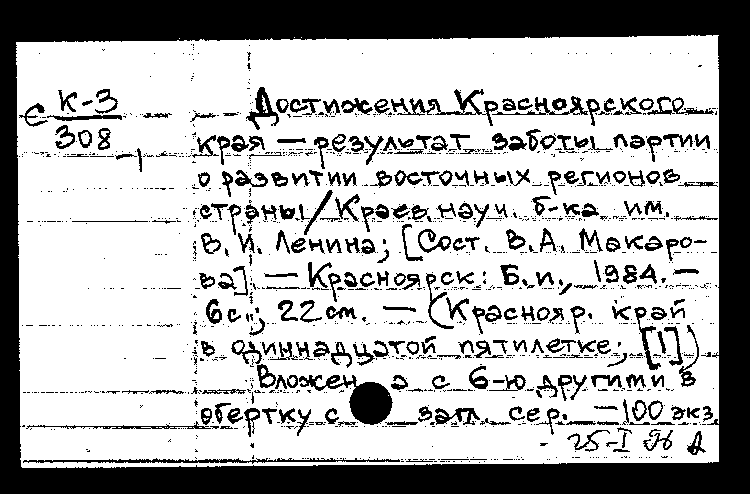 С К-3
308
-1
Достижения Красноярского
края — результат заботы партии
о развитии восточных регионов
страны / Краев. науч. б-ка им.
В. И. Ленина; [Сост. В. А. Макаро-
ва]. — Красноярск: Б. и., 1984. —
6 с.; 22 см. — (Краснояр. край
в одиннадцатой пятилетке; [1])
Вложена с 6-ю другими в
обертку с загл. сер. — 100 экз.
25-I